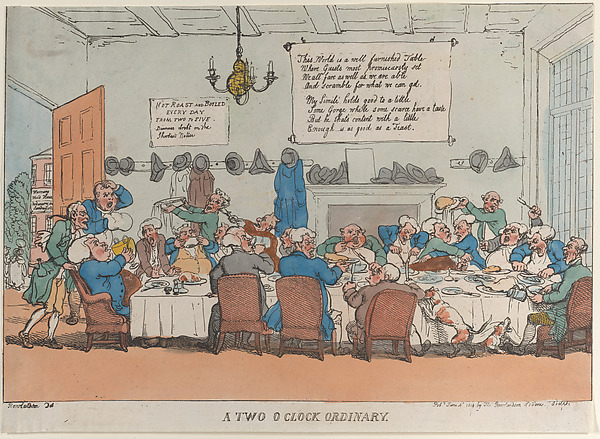 This World is a well furnished Table
Where Guests most promiscuously set
We all fare as well as we are able
And Scramble for what we can get.
My Simile holds good to a tittle
Some Gorge while some scarce have a taste
But he thats content with a little
Enough is as good as a Feast.
HOT ROAST AND BOILED
EVERY DAY
FROM TWO TO FIVE
Dinners drest on the
Shortest Notice
Rowlandson Del
A TWO O CLOCK ORDINARY.
by Tho Rowlandson